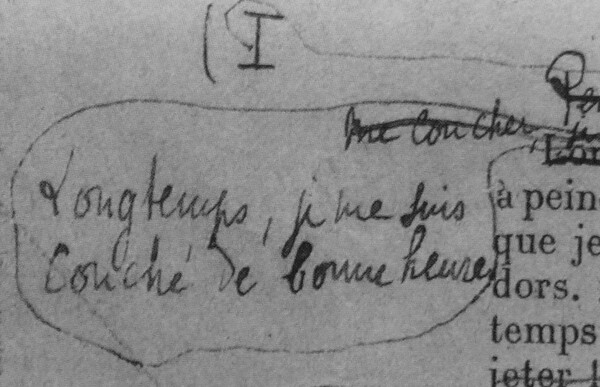 (I
me coucher
Longtemps, je me suis
couché de bonne heure
à pein
que je
dors.
temps
jeter l